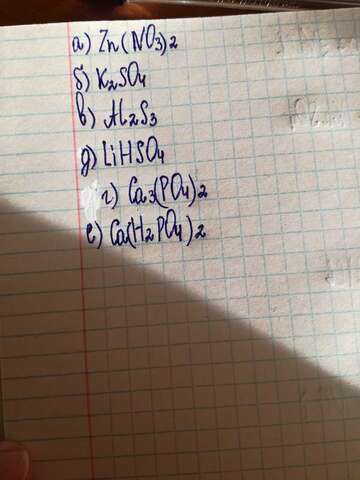 а) Zn(NO3)2
б) K2SO4
в) Al2S3
д) LiHSO4
г) Ca3(PO4)2
е) Ca(H2PO4)2